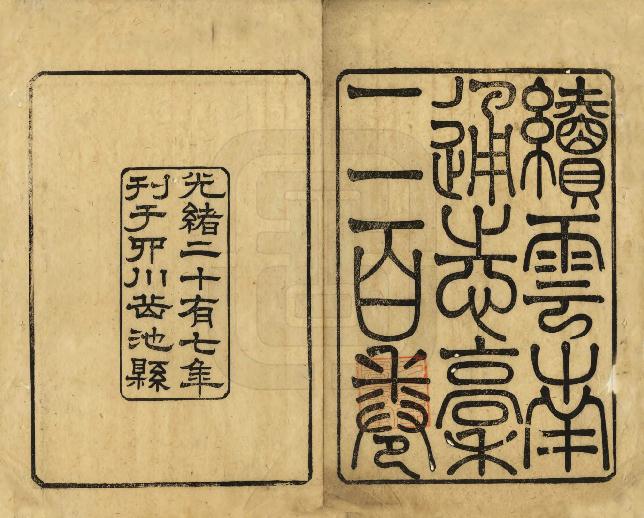 續雲南
通志稾
二百卷
光緒二十有七年
刊于四川岳池縣